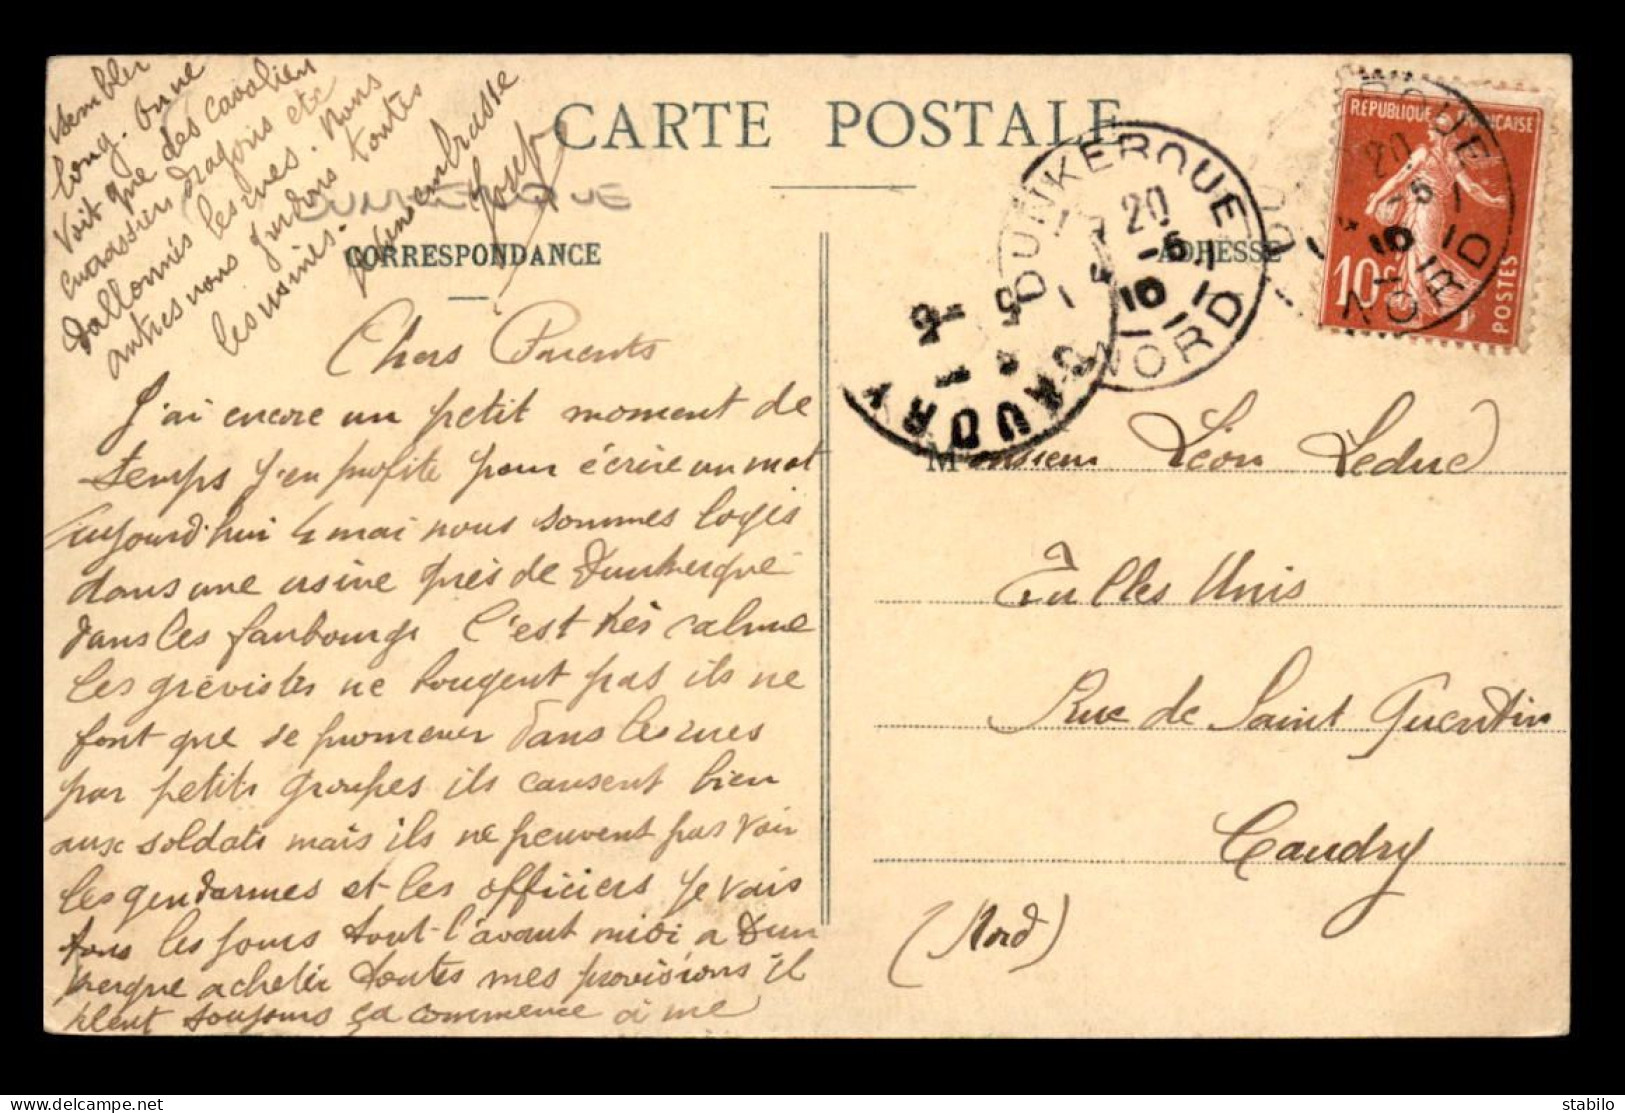 CARTE POSTALE
DUNKERQUE
CORRESPONDANCE
ADRESSE
Chers Parents
J'ai encore un petit moment de
temps j'en profite pour écrire un mot
aujourd'hui 4 mai nous sommes logés
dans une usine près de Dunkerque
dans les faubourgs C'est très calme
les grévistes ne bougent pas ils ne
font que se promener dans les rues
par petits groupes ils causent bien
aux soldats mais ils ne peuvent pas voir
les gendarmes et les officiers je vais
tous les jours tout l'avant midi a Dun
kerque acheter toutes mes provisions il
pleut toujours ça commence à me
sembler
long. On ne
voit que des cavaliers
cuirassiers dragons etc
dallonnés les rues. Nous
autres nous gardons toutes
les usines.
Je vous embrasse
Joseph
REPUBLIQUE FRANÇAISE
10c
POSTES
DUNKERQUE
20
4 -5
10
NORD
DUNKERQUE
20
4 -5
10
NORD
CAUDRY
Monsieur Léon Leduc
Tulles Unis
Rue de Saint Quentin
Caudry
(Nord)
stabilo